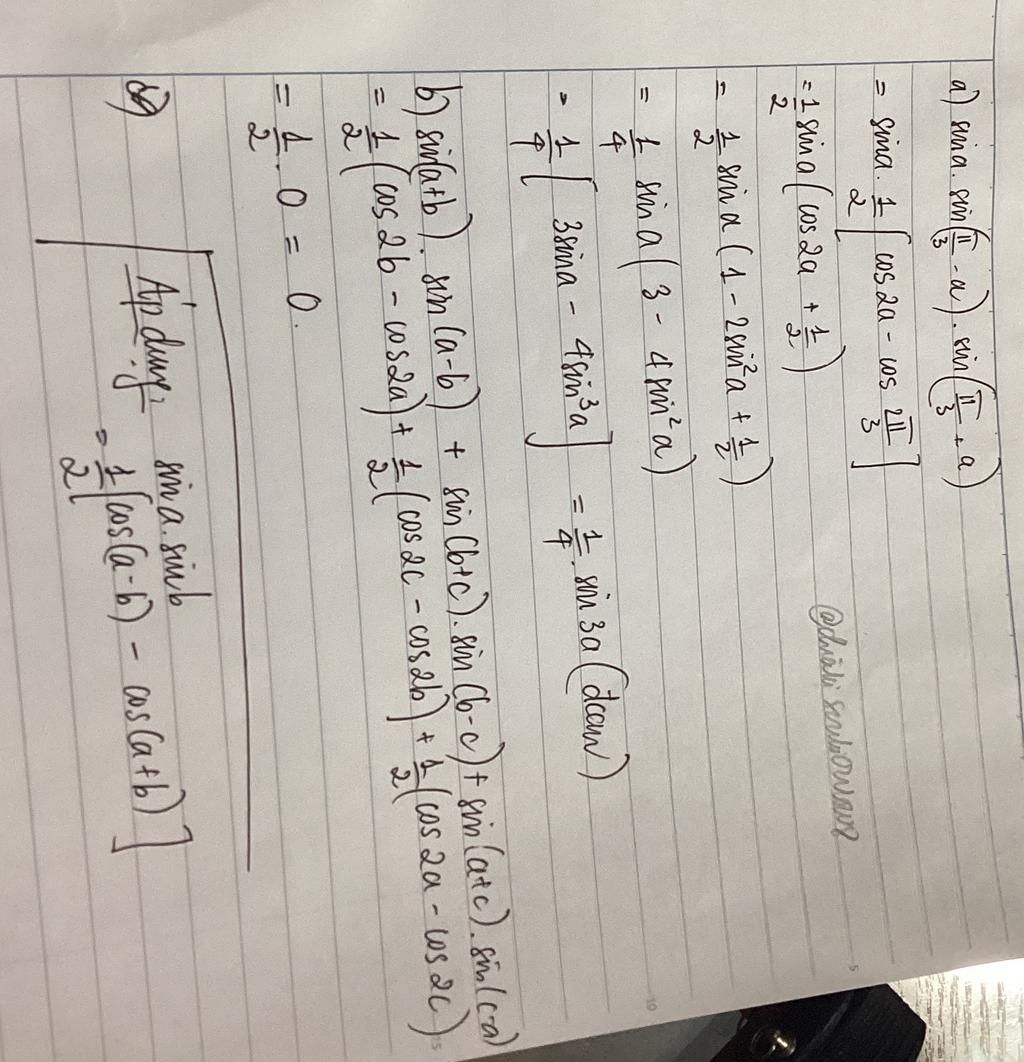 a) sina. sin(π/3 - a). sin(π/3 + a)
= sina. 1/2 [cos2a - cos 2π/3]
= 1/2 sina (cos2a + 1/2)
= 1/2 sina (1 - 2sin²a + 1/2)
= 1/4 sina (3 - 4sin²a)
= 1/4 [3sina - 4sin³a] = 1/4. sin3a (đcm)
b) sin(a+b). sin(a-b) + sin(b+c). sin(b-c) + sin(a+c). sin(c-a)
= 1/2 (cos2b - cos2a) + 1/2 (cos2c - cos2b) + 1/2 (cos2a - cos2c)
= 1/2. 0 = 0.
Áp dụng: sina. sinb
= 1/2 [cos(a-b) - cos(a+b)]
5
10
15